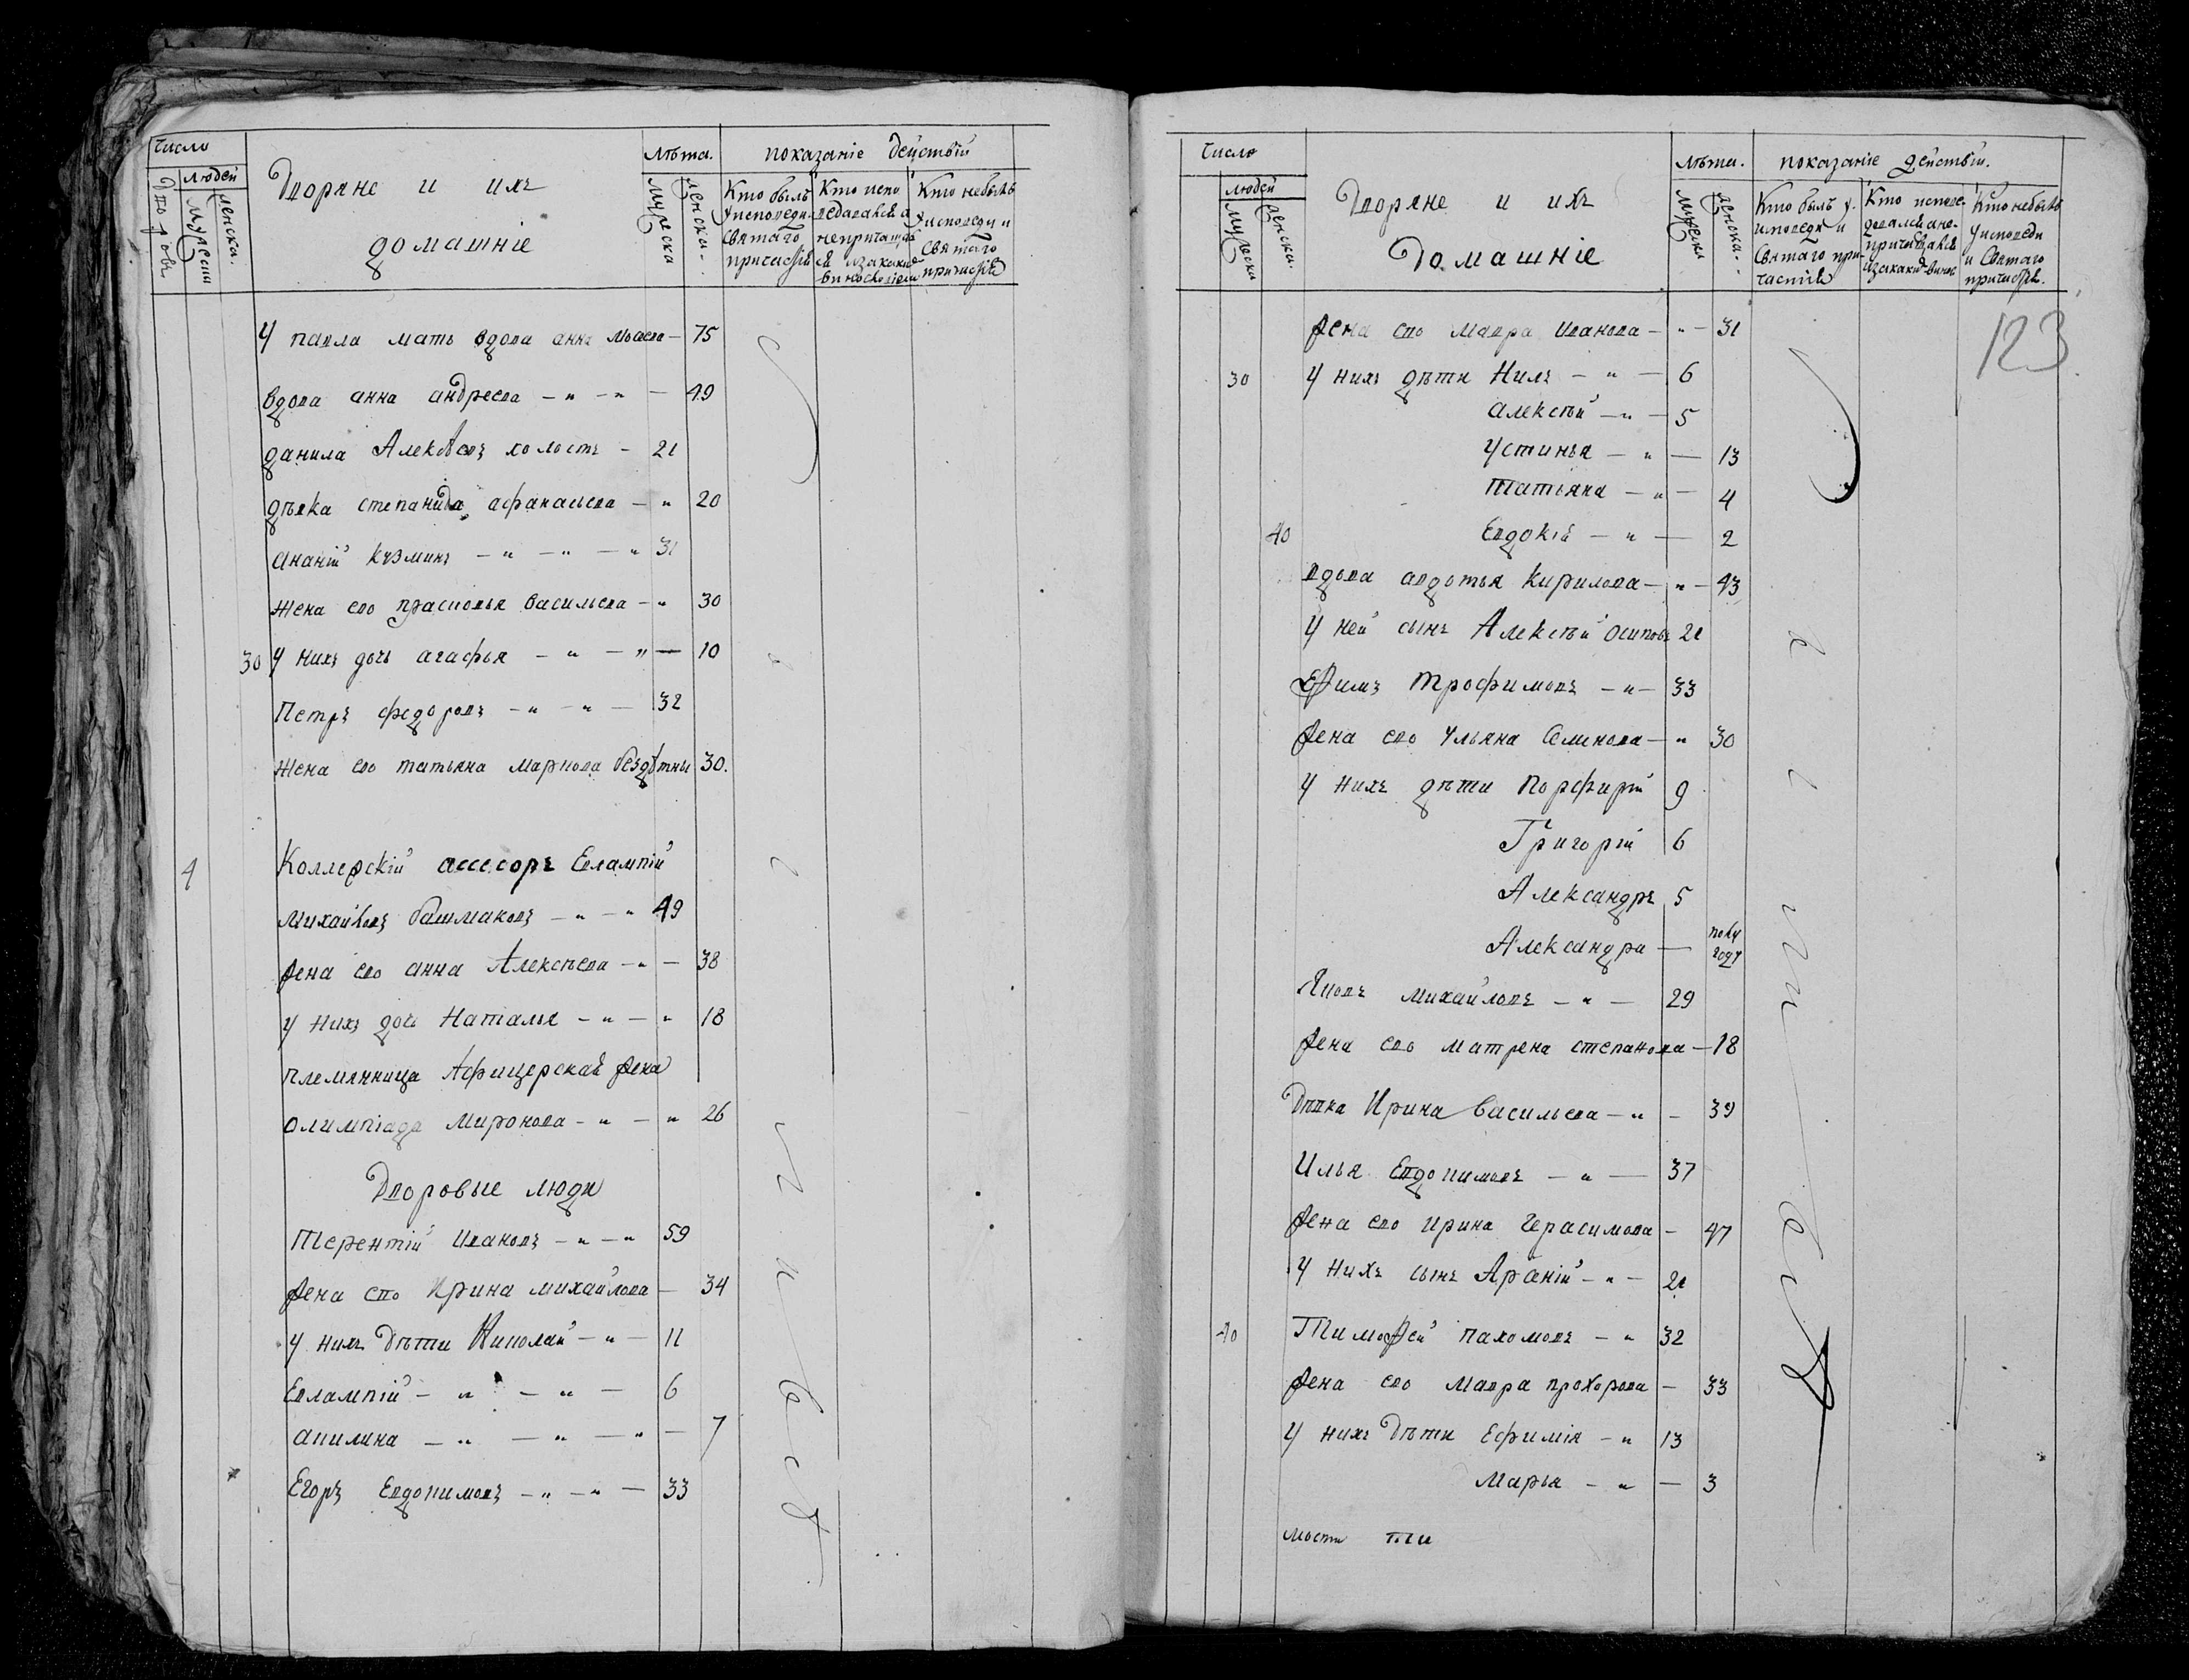 Число
Дворовъ
людей
мужеска
женска.
Дворяне и ихъ
домашніе
Лѣта.
мужеска
женска
показаніе действій
Кто былъ
у исповеди
Святаго
причастія
Кто испо
ведавался а
непричащал
ся изакакимъ
винословіемъ
Кто небылъ
у исповеди и
Святаго
причастія
У павла мать вдова анна 75
вдова анна андреева - " - " - 49
данила Алексѣевъ холостъ - 21
дѣвка степанида афанасьева - " 20
ананій кузминъ - " - " - " 31
Жена ево прасковья васильева - " 30
30 У нихъ дочь агафья - " - " - 10
Петръ федоровъ - " - " - 32
Жена ево татьяна маркова бездѣтны 30.
4 Коллежскій ассесоръ Евлампій
михайловъ башмаковъ - " - " 49
жена ево анна Алексѣева - " - 38
у нихъ дочь Наталья - " - " 18
племянница Афицерская жена
олимпіада Миронова - " - " 26
Дворовые люди
Терентій Ивановъ - " - " 59
жена ево Ирина михайлова - 34
у нихъ Дѣти Николай - " - 11
Евлампій - " - " - 6
акилина - " - " - " - 7
Егоръ Евдокимовъ - " - " - 33
Число
людей
мужеска
женска.
Дворяне и ихъ
Домашніе
лѣта.
мужеска
женска
показаніе действій.
Кто былъ у
исповеди и
Святаго при
частія
Кто испове
довался ане
причащался
изакакимъ виносл
Кто небылъ
у исповеди
и Святаго
причастія.
123
жена ево мавра Иванова - " - 31
30 У нихъ дѣти Нилъ - " - 6
алексѣй - " - 5
Устинья - " - 13
татьяна - " - 4
40 Евдокія - " - 2
вдова авдотья кирилова - " - 43
У ней сынъ Алексѣй осиповъ 21
Ефимъ трофимовъ - " - 33
жена ево ульяна Семенова - " 30
У нихъ дѣти Порфирій 9
Григорій 6
Александръ 5
Александра - полу
году
Яковъ михайловъ - " - 29
жена ево матрена степанова - 18
Дѣвка Ирина Васильева - " - 39
Илья Евдокимовъ - " - 37
жена ево ирина Герасимова - 47
У нихъ сынъ 21
40 Тимофей пахомовъ - " 32
жена ево мавра прохорова - 33
У нихъ Дѣти Ефимія - " 13
Марья - " - 3